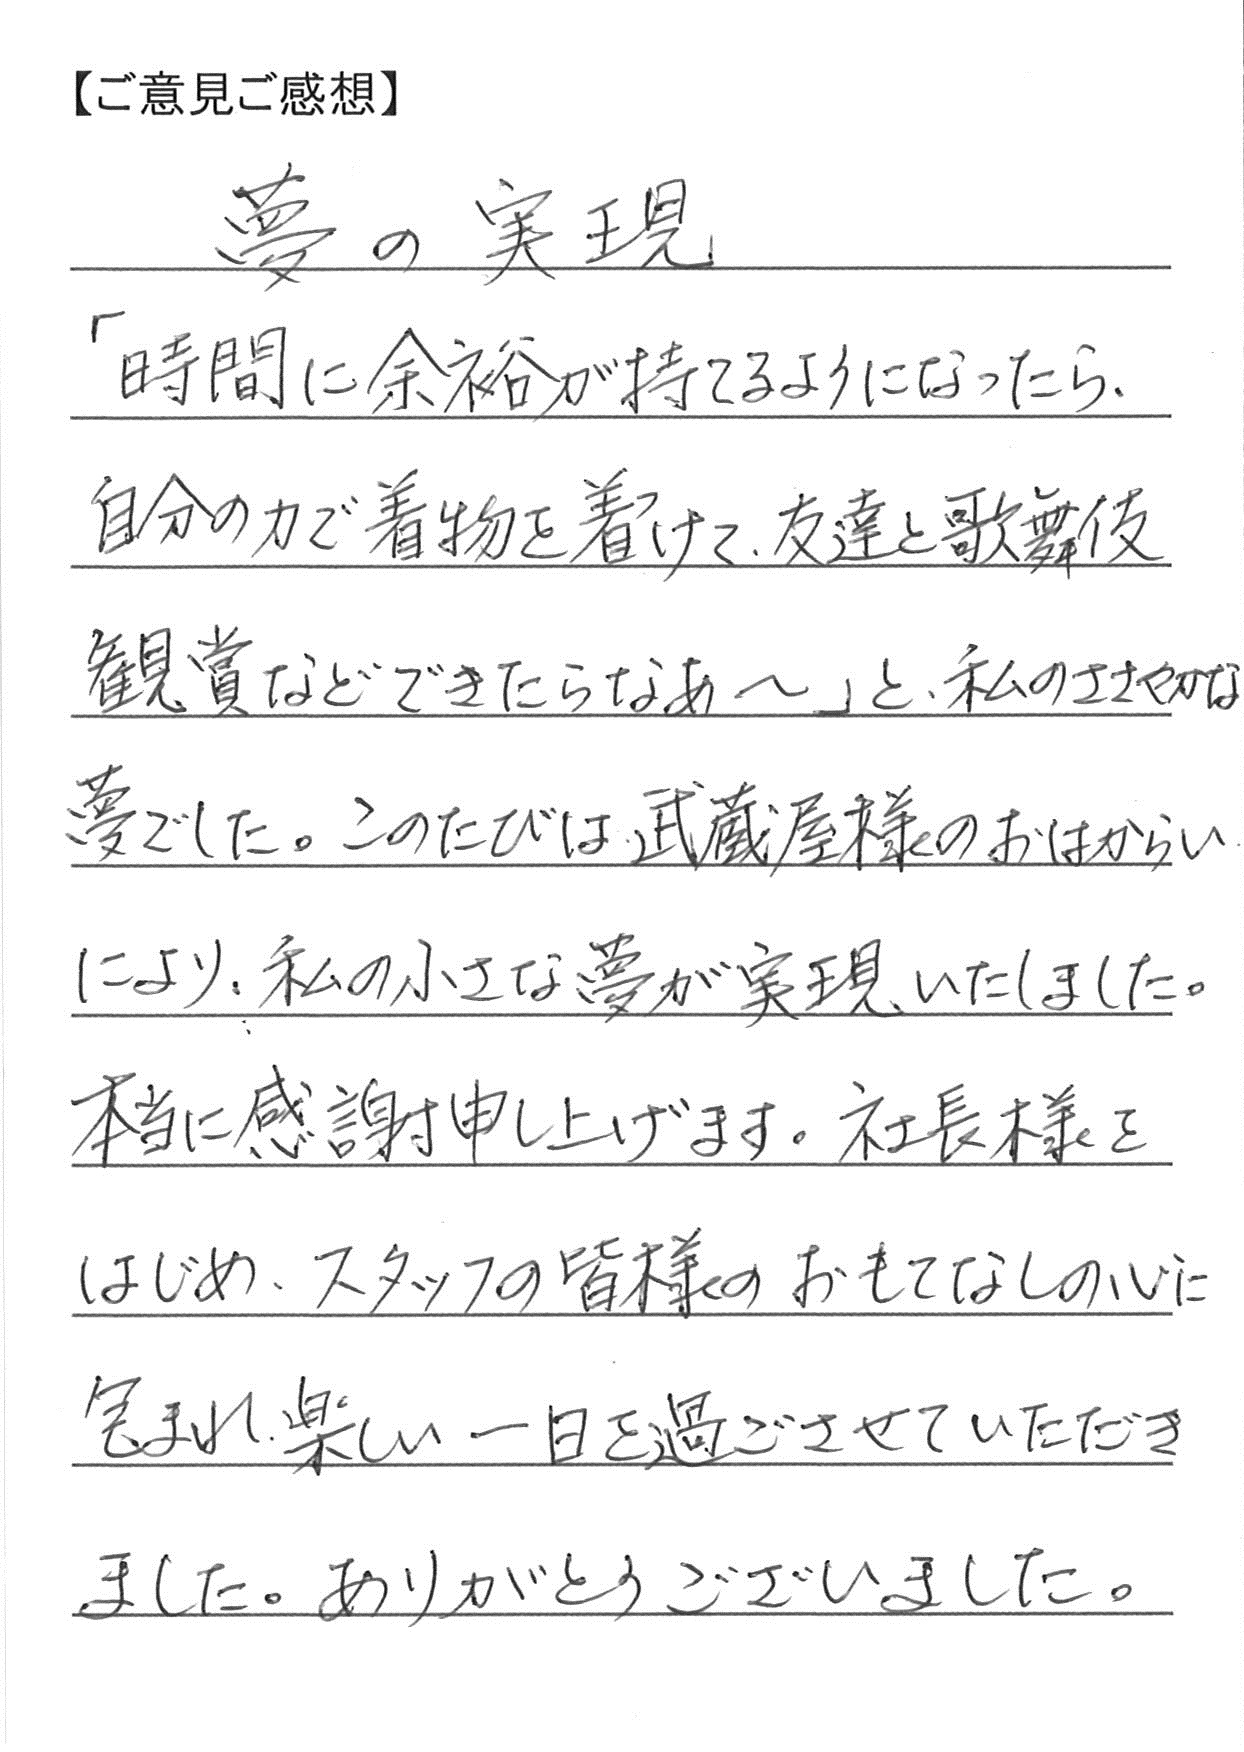 【ご意見ご感想】
夢の実現
「時間に余裕が持てるようになったら、
自分の力で着物を着けて、友達と歌舞伎
観賞などできたらなあ〜」と、私のささやかな
夢でした。このたびは、武蔵屋様のおはからい
により、私の小さな夢が実現いたしました。
本当に感謝申し上げます。社長様を
はじめ、スタッフの皆様のおもてなしの心に
包まれ、楽しい一日を過ごさせていただき
ました。ありがとうございました。